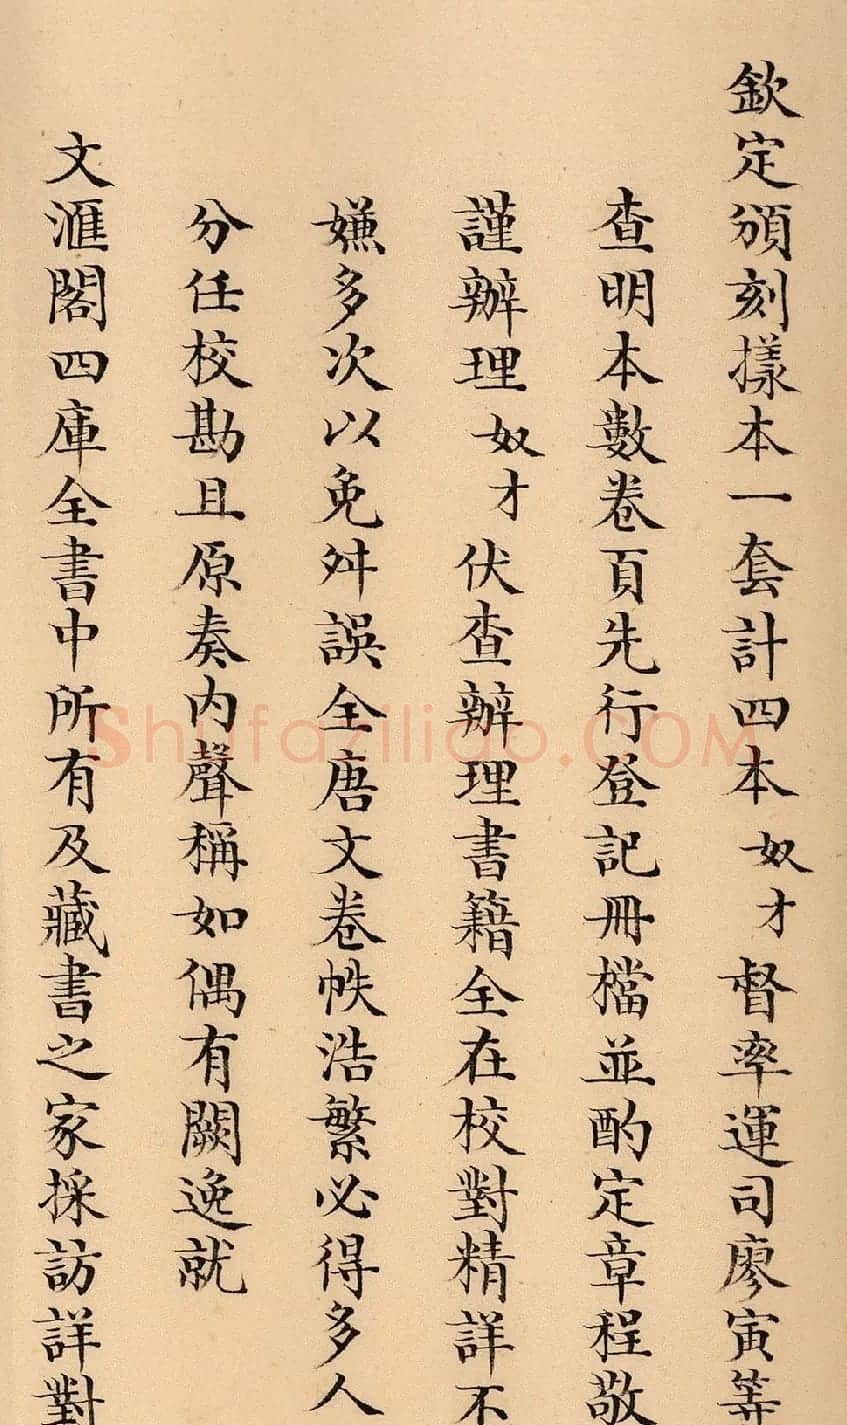 欽定頒刻樣本一套計四本奴才督率運司廖寅等
查明本數卷頁先行登記冊檔並酌定章程敬
謹辦理奴才伏查辦理書籍全在校對精詳不
嫌多次以免舛誤全唐文卷帙浩繁必得多人
分任校勘且原奏內聲稱如偶有闕逸就
文滙閣四庫全書中所有及藏書之家採訪詳對
Shufaziliao.COM